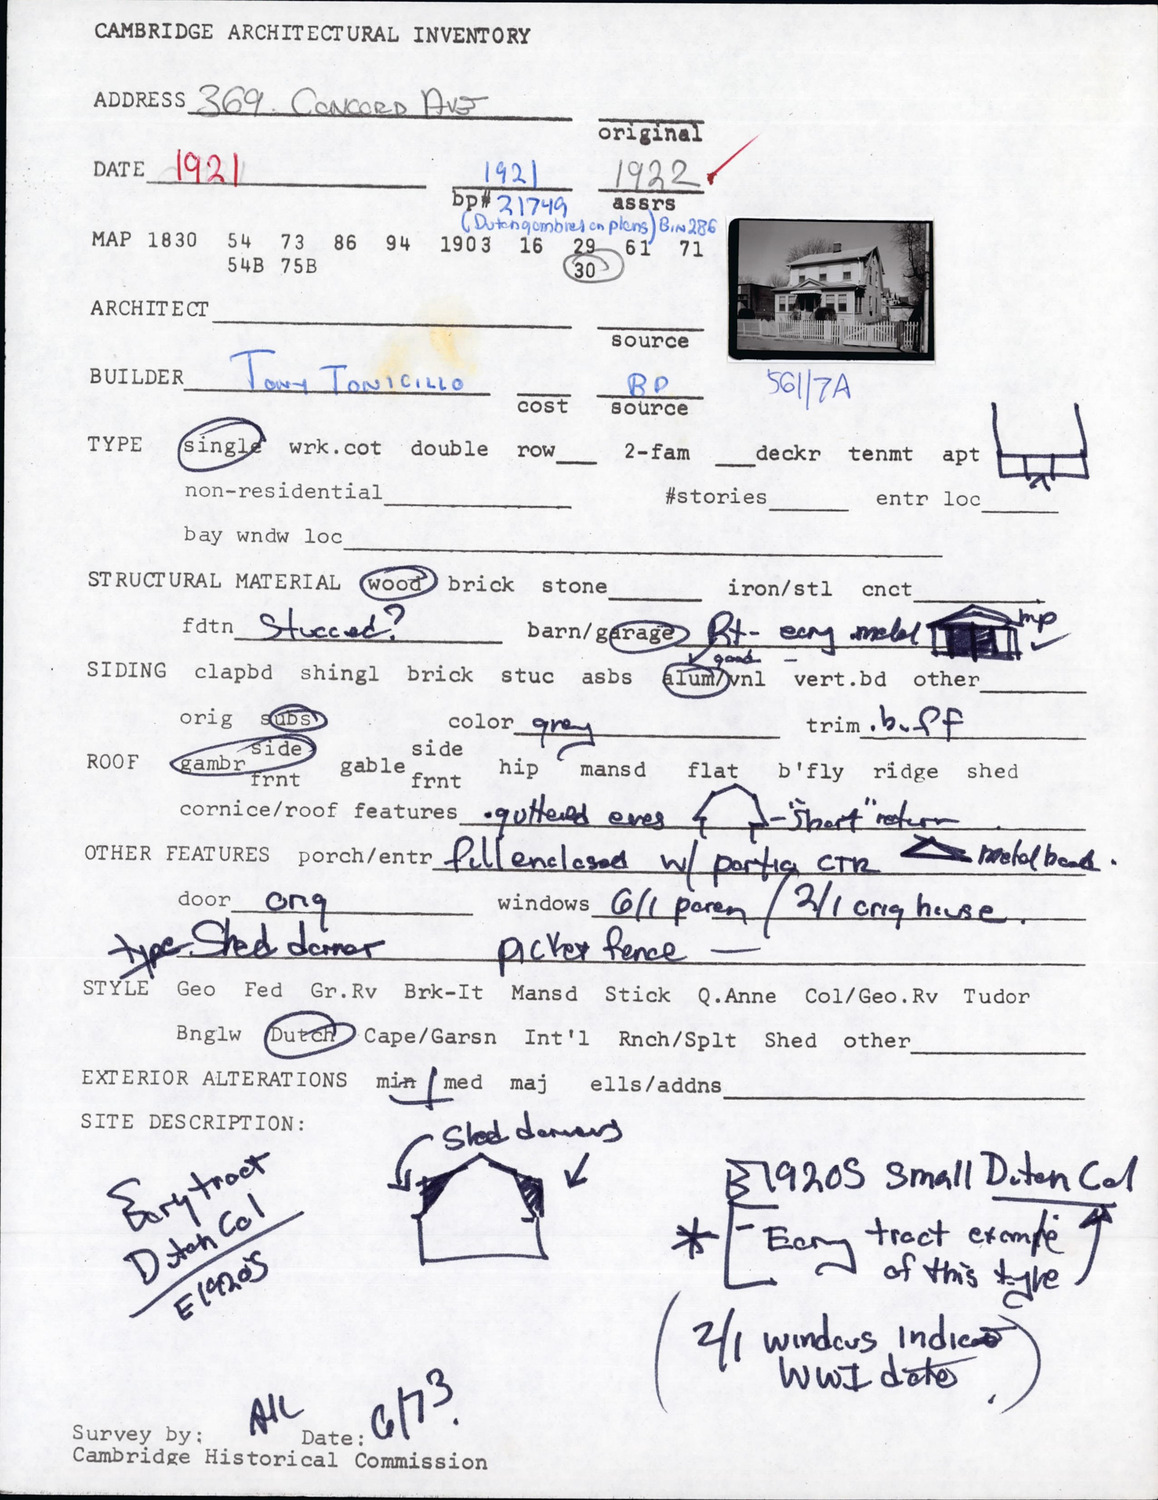 CAMBRIDGE ARCHITECTURAL INVENTORY
ADDRESS 369 CONCORD AVE
original
DATE 1921 1921 1922
bp# 21749 assrs
(Dutch gambrel on plans) BIN 286
MAP 1830 54 73 86 94 1903 16 29 61 71
54B 75B 30
ARCHITECT
source
BUILDER TONY TONICILLO BP 561/7A
cost source
TYPE single wrk.cot double row 2-fam deckr tenmt apt
non-residential #stories entr loc
bay wndw loc
STRUCTURAL MATERIAL wood brick stone iron/stl cnct
fdtn Stuccoed? barn/garage Rt - early metal mp
good
SIDING clapbd shingl brick stuc asbs alum/vnl vert.bd other
orig subs color grey trim buff
ROOF gambr side frnt gable side frnt hip mansd flat b'fly ridge shed
cornice/roof features guttered eves - "short" return
OTHER FEATURES porch/entr full enclosed w/ CTR metal
door orig windows 6/1 / 2/1 orig house.
type Shed dormer picket fence —
STYLE Geo Fed Gr.Rv Brk-It Mansd Stick Q.Anne Col/Geo.Rv Tudor
Bnglw Dutch Cape/Garsn Int'l Rnch/Splt Shed other
EXTERIOR ALTERATIONS min med maj ells/addns
SITE DESCRIPTION:
Shed dormers
Early tract
Dutch Col
E1920s
1920s Small Dutch Col
* - Early tract example
of this type
(2/1 windows indicate
WWI date.)
Survey by: Date: 6/73.
Cambridge Historical Commission